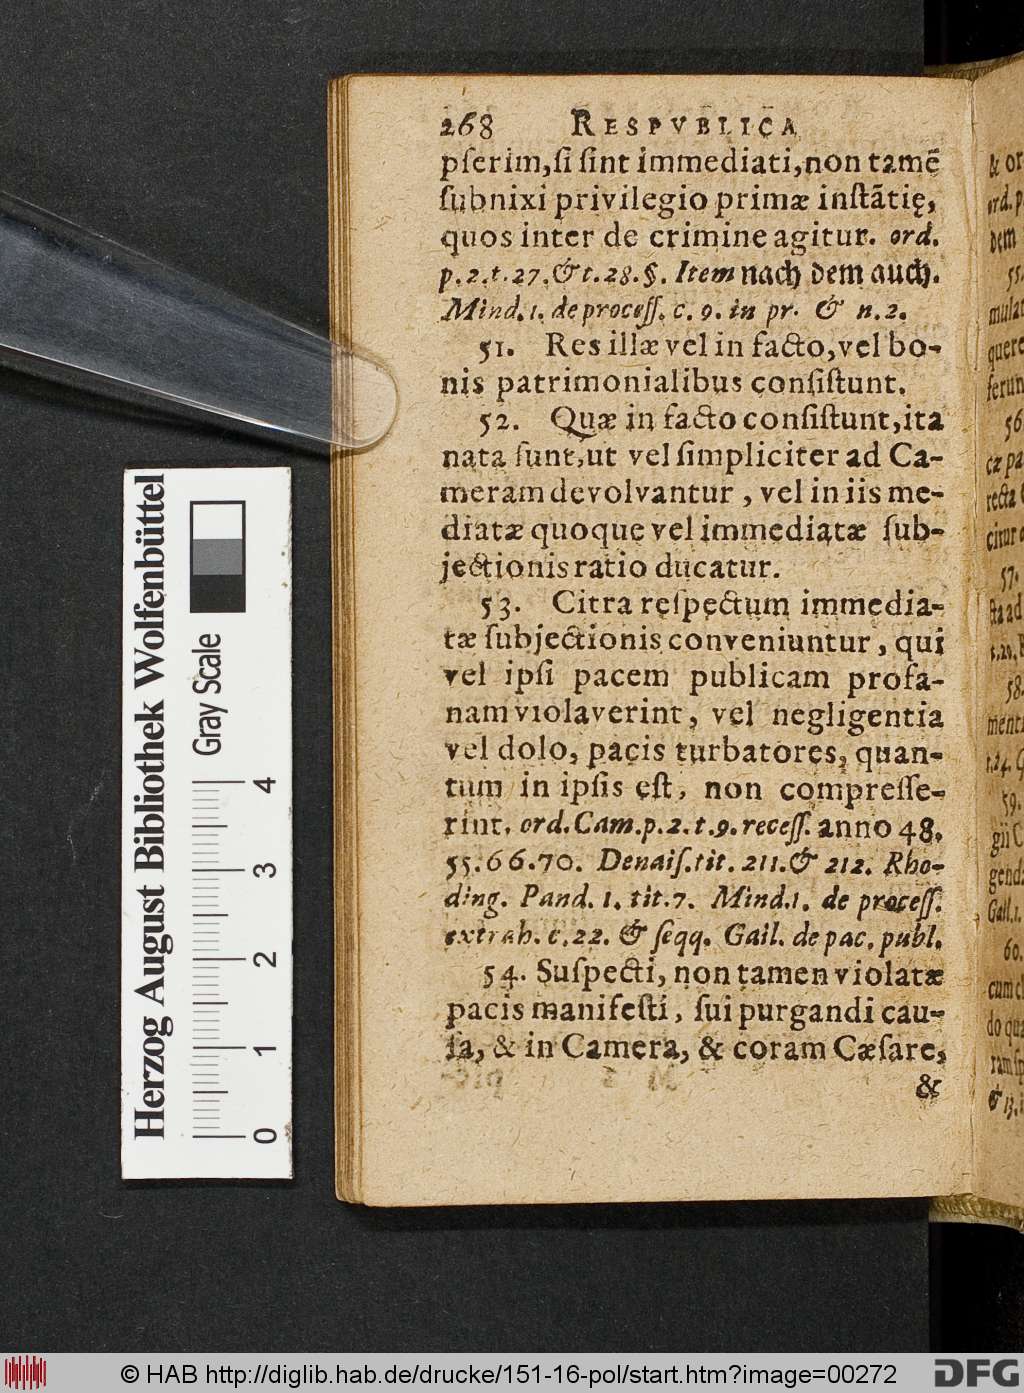 268 RESPVBLICA
pſerim,ſi ſint immediati,non tamẽ
ſubnixi privilegio primæ inſtãtię,
quos inter de crimine agitur. ord.
p.2.t.27.& t.28.§. Item nach dem auch.
Mind.1. de proceſſ. c. 9. in pr. & n.2.
51. Res illæ vel in facto,vel bo-
nis patrimonialibus conſiſtunt.
52. Quæ in facto conſiſtunt,ita
nata ſunt,ut vel ſimpliciter ad Ca-
meram devolvantur , vel in iis me-
diatæ quoque vel immediatæ ſub-
jectionis ratio ducatur.
53. Citra reſpectum immedia-
tæ ſubjectionis conveniuntur , qui
vel ipſi pacem publicam profa-
nam violaverint, vel negligentia
vel dolo, pacis turbatores, quan-
tum in ipſis eſt, non compreſſe-
rint. ord.Cam.p.2.t.9.receſſ. anno 48.
55.66.70. Denaiſ.tit. 211.& 212. Rho-
ding. Pand. 1. tit.7. Mind.1. de proceſſ.
extrah. c.22. & ſeqq. Gail. de pac. publ.
54. Suſpecti, non tamen violatæ
pacis manifeſti, ſui purgandi cau-
ſa, & in Camera, & coram Cæſare,
&
Herzog August Bibliothek Wolfenbüttel
Gray Scale
0 1 2 3 4
© HAB http://diglib.hab.de/drucke/151-16-pol/start.htm?image=00272
DFG